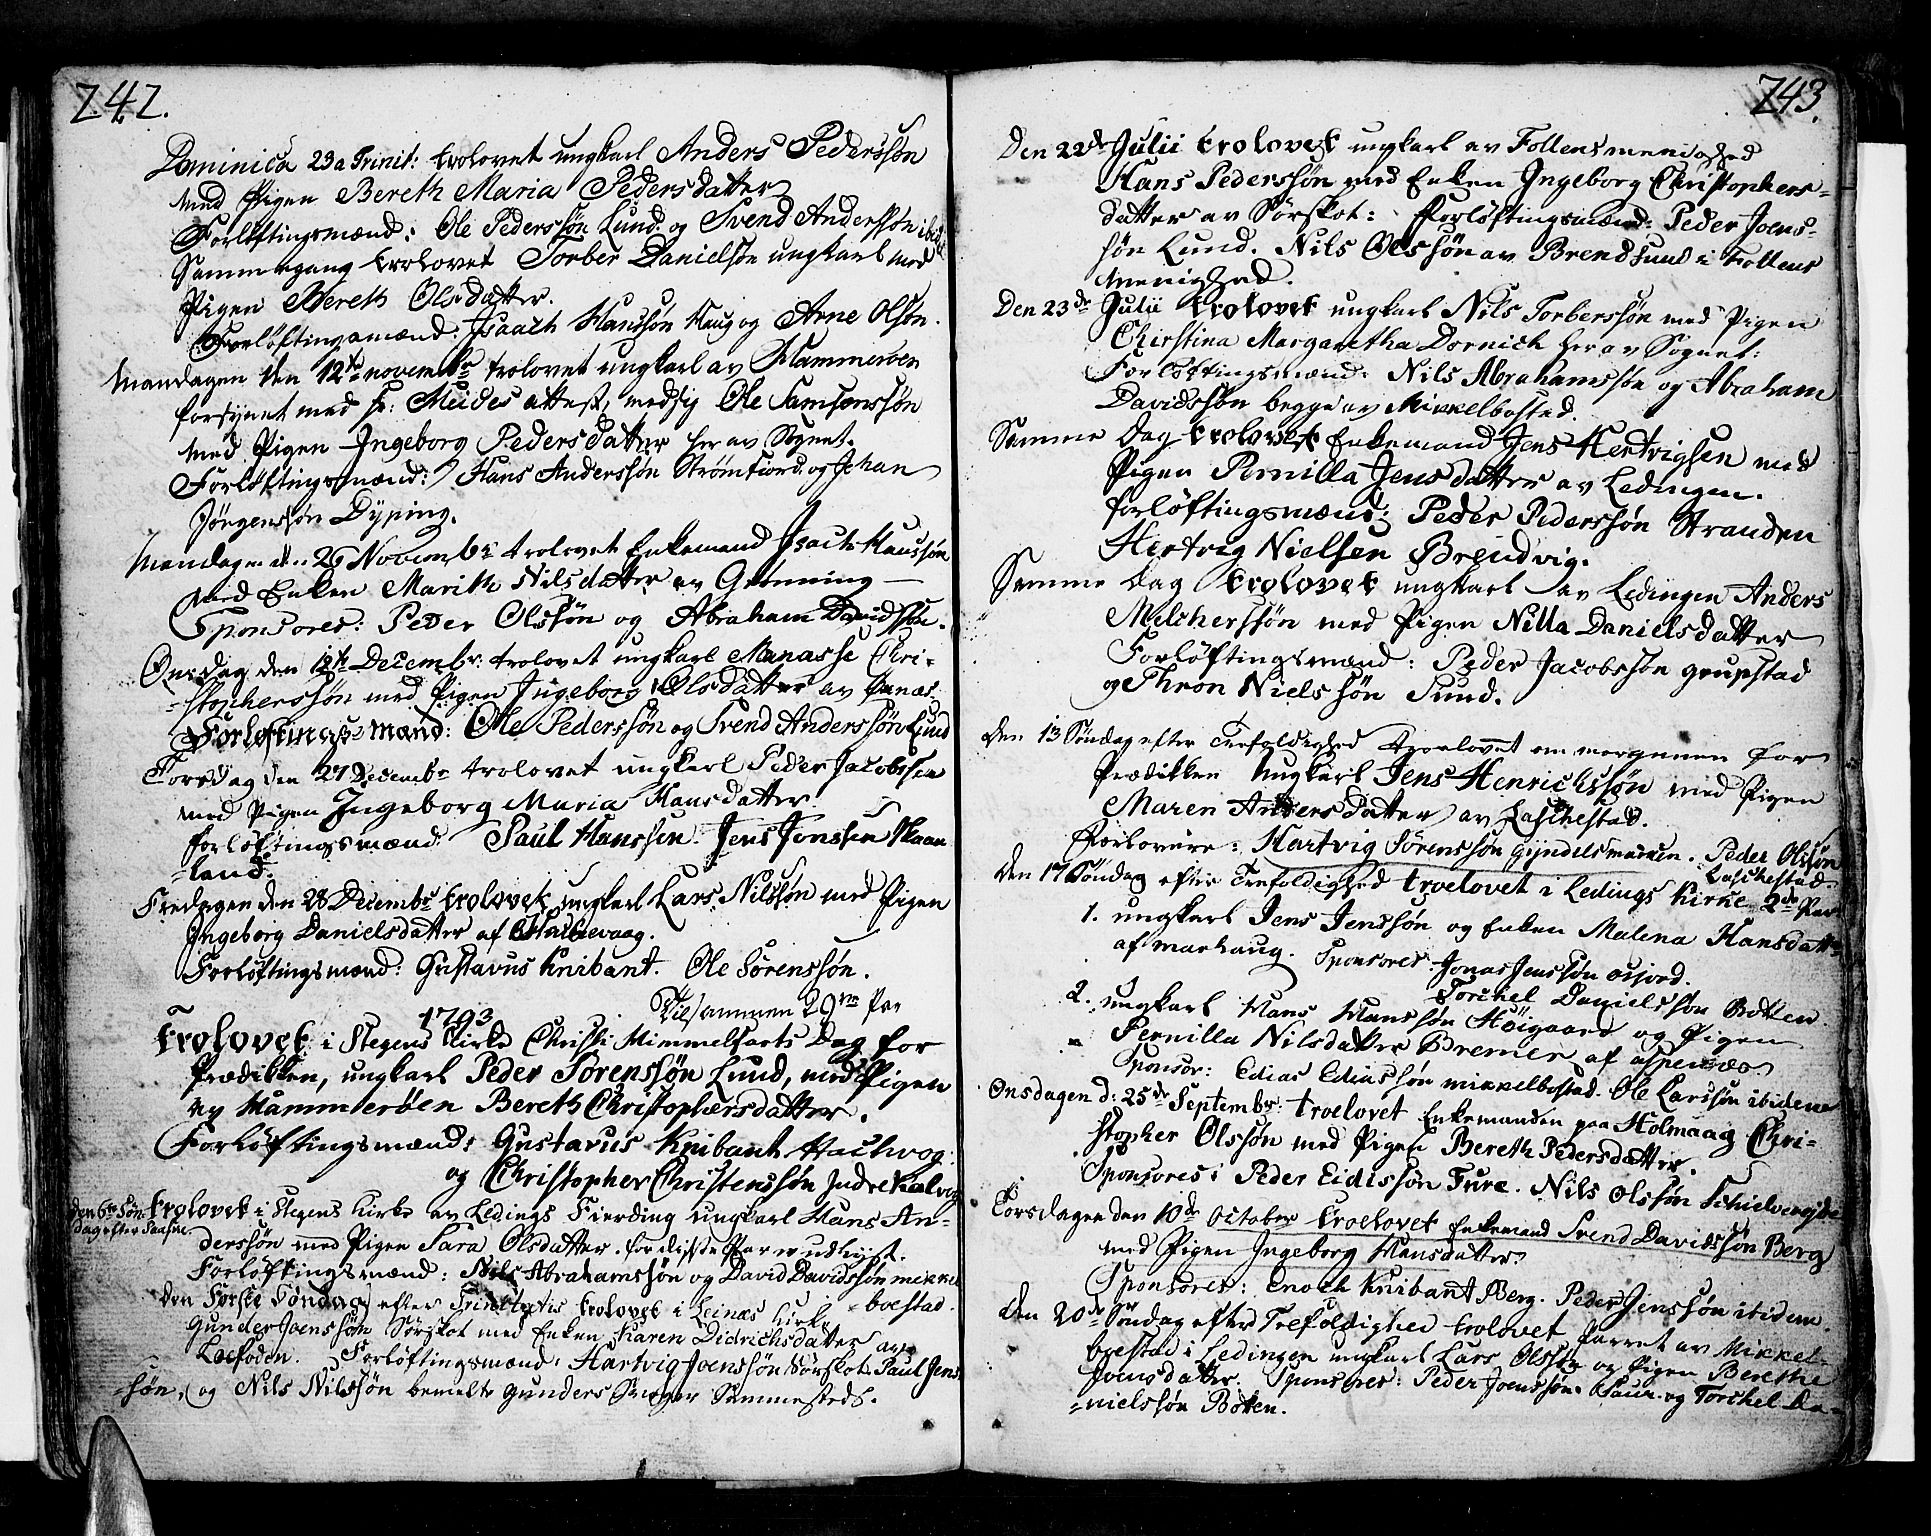 242.
Dominica 23 a Trinit: trolovet ungkarl Anders Pederssøn
med Pigen Bereth Maria Pedersdatter
Forløftingsmænd: Ole Pederssøn Lund og Svend Anderssøn ibid
Samme gang trolovet Torber Danielsøn ungkarl med
Pigen Bereth Olsdatter.
Forløftingsmænd: Isaach Hanssøn Haug og Arne Olsøn.
Mandagen den 12te novembr trolovet ungkarl av Hammerøen
forsynet med hr: Meides attest, med sig Ole Samsonssøn
med Pigen Ingeborg Pedersdatter her av Sognet.
Forløftingsmænd: Hans Anderssøn Strømfiord og Johan
Jørgenssøn Dyping.
Mandagen den 26 Novembr trolovet Enkemand Isach Hanssøn
med Enken Marith Nilsdatter av Grønning
Sponsores: Peder Olssøn og Abraham Davidssøn.
Onsdag den 12te Decembr: trolovet ungkarl Manasse Chri-
-stopherssøn med Pigen Ingeborg Olsdatter av Bønæs
Forløftingsmænd: Ole Pederssøn og Svend Anderssøn Lund
Torsdag den 27 Decembr trolovet ungkarl Peder Jacobssen
med Pigen Ingeborg Maria Hansdatter.
forløftingsmænd Paul Hanssen. Jens Jonssen Skaan
-land.
Fredagen den 28 Decembr trolovet ungkarl Lars Nilssøn med Pigen
Ingeborg Danielsdatter af Hachevaag.
Forløftingsmænd: Gustavus Knibant. Ole Sørenssøn.
Tilsammen 29ve Par
1793
Trolovet i Stegens Kirke Christi Himmelfarts Dag for
Prædikken, ungkarl Peder Sørenssøn Lund, med Pigen
av Hammerøen Bereth Christophersdatter.
Forløftingsmænd: Gustavus Knibant Hachvog
og Christopher Christenssøn Indre Kalvog
den 6te Søn-
dag efter Paaske
trolovet i Stegens Kirke av Ledings Fierding ungkarl Hans An-
derssøn med Pigen Sara Olsdatter. for disse Par er udlyst.
Forløftingsmænd: Nils Abrahamssøn og David Davidssøn mikkel
-boestad.
den Første Søndag efter Trinitatis trolovet i Leinæs Kirke
Gunder Joenssøn Sørskot med Enken Karen Didrichsdatter av
Loefoden. Forløftingsmænd: Hartvig Joenssøn Sørskot Paul Jens
-søn, og Nils Nilssøn bemelte Gunders Svoger Sammesteds.
243.
Den 22de Julii trolovet ungkarl av Follens menighed
Hans Pederssøn med Enken Ingeborg Christophers-
datter av Sørskot: Forløftingsmænd: Peder Joens-
søn Lund. Nils Olssøn av Brendsund i Follens
menighed.
Den 23de Julii trolovet ungkarl Nils Torberssøn med Pigen
Christina Margaretha Dornich her av Sognet:
Forløftingsmænd: Nils Abrahamssøn og Abraham
Davidssøn begge av Mikkelbosted.
Samme Dag trolovet Enkemand Jens Hertvigsen med
Pigen Pernilla Jensdatter av Ledingen.
forløftingsmænd: Peder Pederssøn Stranden
Hertvig Nielsen Brendvig.
Samme Dag trolovet ungkarl av Ledingen Anders
Milcherssøn med Pigen Nilla Danielsdatter
Forløftingsmænd: Peder Jacobssøn grupstad
og Thron Nielssøn Sund.
den 13 Søndag efter Trefoldighed troelovet om morgenen for
Prædikken Ungkarl Jens Henrichssøn med Pigen
Maren Andersdatter av Laschestad.
Forlovere: Hartvig Sørenssøn Gyndelsmarken. Peder Olssøn
Laschestad.
den 17 Søndag efter Trefoldighed troelovet i Ledings Kirke 2de Par
1. ungkarl Jens Jenssøn og Enken Malena Hansdatter
af marhaug. Sponsores: Jonas Jenssøn osjord.
Torchel Danielssøn Botten
2. ungkarl Hans Hanssøn Høigaard og Pigen
Pernilla Nilsdatter Bremer af aspenæs
Sponsor: Edias Ediassøn mikkelbostad. Ole Larssøn ibidem
Onsdagen d: 25de Septembr: troelovet Enkemanden paa Holmaag Chri-
stopher Olssøn med Pigen Bereth Pedersdatter.
Sponsores: Peder Eidissøn Fure. Nils Olssøn Schielvereide
Torsdagen den 10de October troelovet Enkemand Svend Davidssøn Berg
med Pigen Ingeborg Hansdatter.
Sponsores: Enoch Knibant Berg. Peder Jenssøn ibidem.
den 20de Søndag efter Trefoldighed trolovet Parret av Mikkel-
boestad i Ledingen ungkarl Lars Olssøn og Pigen Berethe
Joensdatter. Sponsores: Peder Joenssøn og Torchel Da-
-nielssøn Botten.